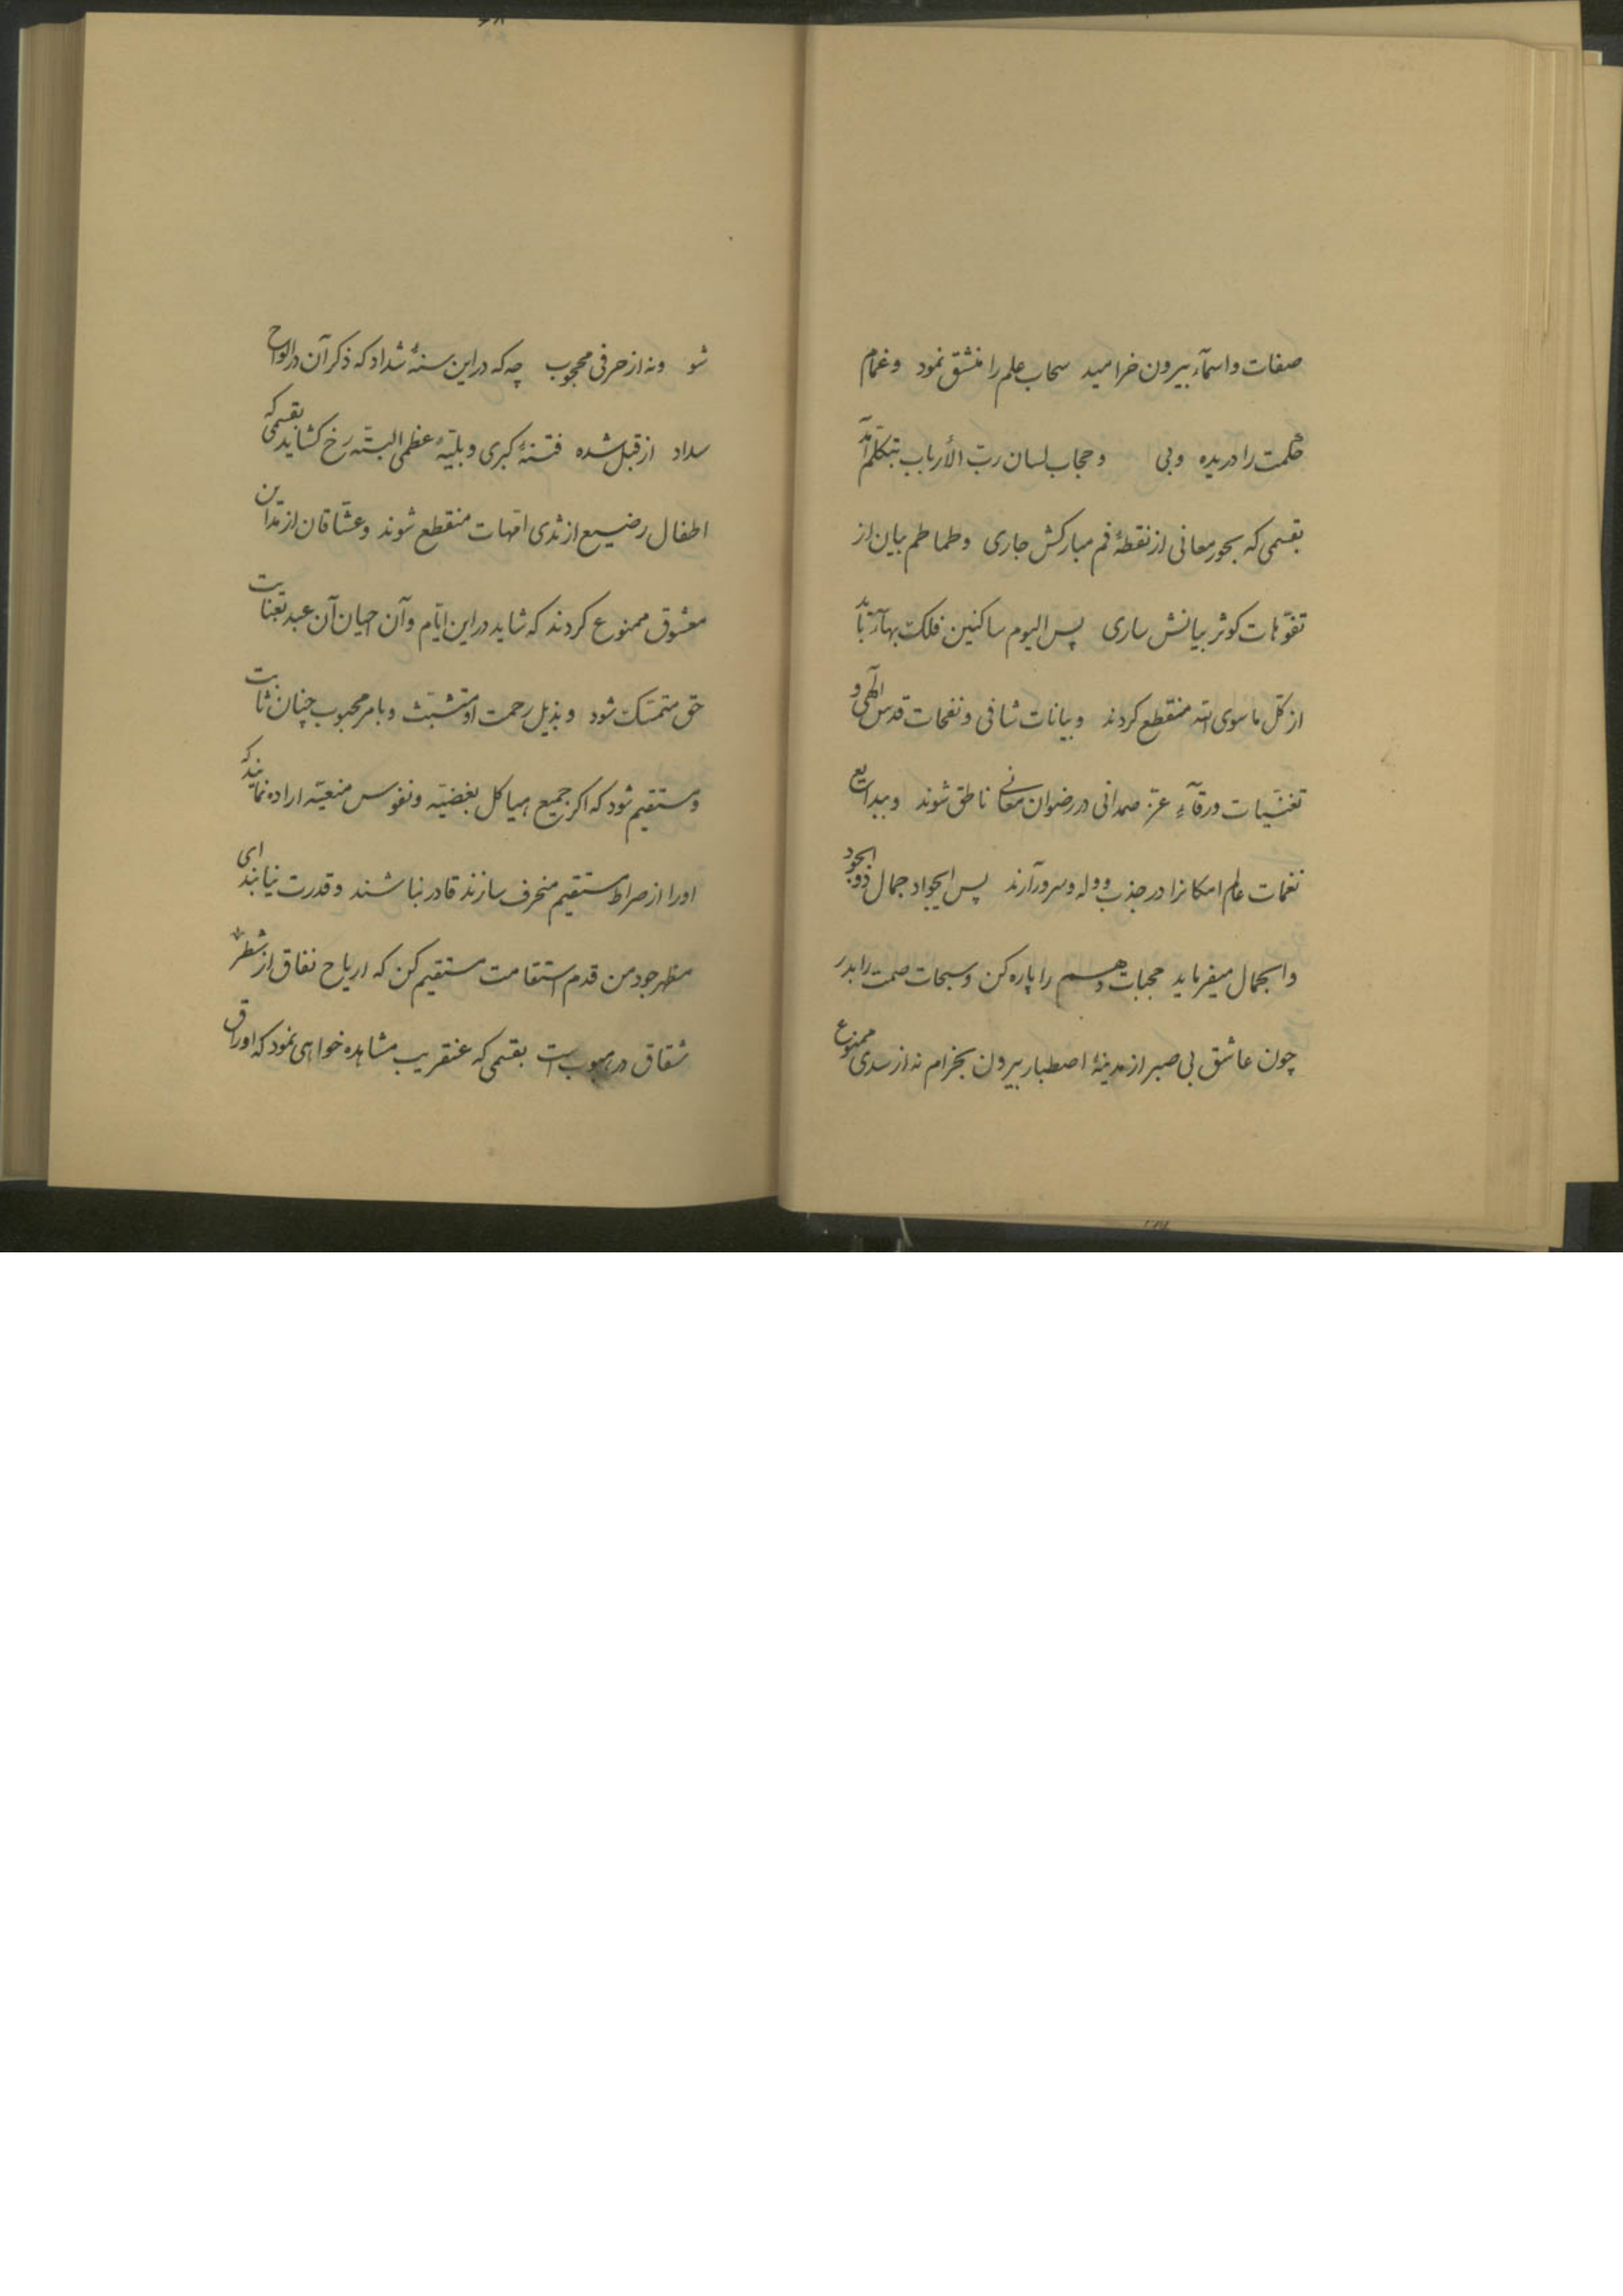 صفات و اسمآء بیرون خرامید سحاب علم را منشق نمود و غمام
حکمت را دریده و بی و حجاب لسان ربّ الأرباب بتکلم آمد
بقسمی که بحور معانی از نقطهٔ فم مبارکش جاری و طماطم بیان از
تفوّهات کوثر بیانش ساری پس الیوم ساکنین فلک بهآء باید
از کل ما سوی الله منقطع کردند و بیانات شافی و نفحات قدس الهی و
تغنّیات ورقآءِ عزّ صمدانی در رضوان معانی ناطق شوند و ببدایع
نغمات عالم امکانرا در جذب و وله و سرور آرند پس ایجواد جمال ذو الجود
و الجمال میفرماید حجبات وهم را پاره کن و سبحات صمت را بدر
چون عاشق بی صبر از مدینهٔ اصطبار بیرون بخرام نه از سدی ممنوع
شو و نه از حرفی محجوب چه که در این سنهٔ شداد که ذکر آن در الواح
سداد از قبل شده فتنهٔ کبری و بلیّهٔ عظمی البتّه رخ کشاید بقسمی که
اطفال رضیع از ثدی امّهات منقطع شوند و عشاقان از مداین
معشوق ممنوع کردند که شاید در این ایّام و آن احیان آن عبد بعنایت
حق متمسّک شود و بذیل رحمت او متشبّث و بامر محبوب چنان ثابت
و مستقیم شود که اکر جمیع هیاکل بغضیّه و نفوس منعیّه اراده نمایند که
او را از صراط مستقیم منحرف سازند قادر نباشند و قدرت نیابند ای
مظهر جود من قدم استقامت مستقیم کن که اریاح نفاق از شطر
شقاق در هبوب است بقسمی که عنقریب مشاهده خواهی نمود که اوراق